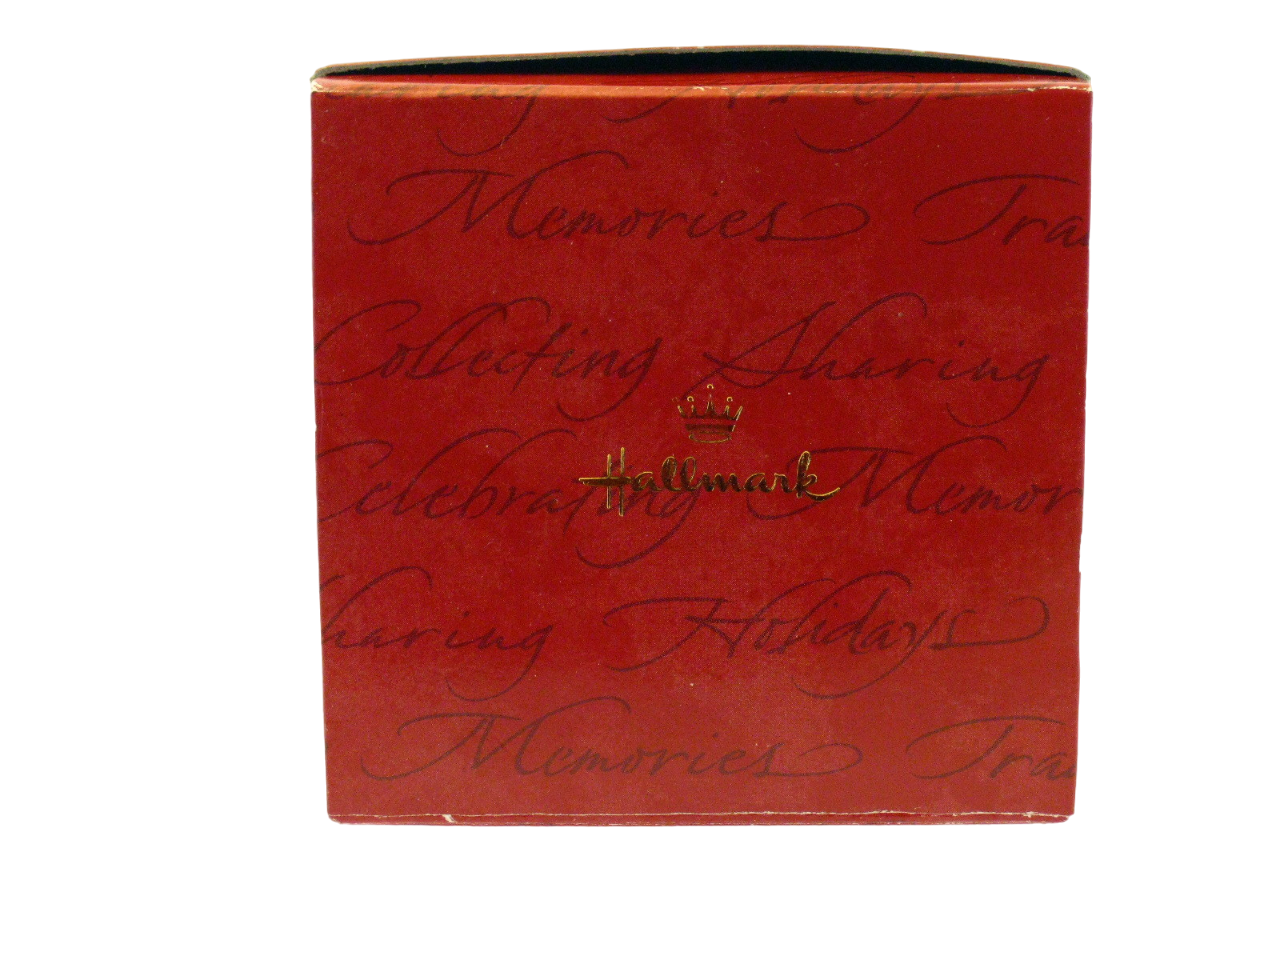 Memories Tra
Collecting Sharing
Hallmark
Celebrating Memor
haring Holidays
Memories Tra